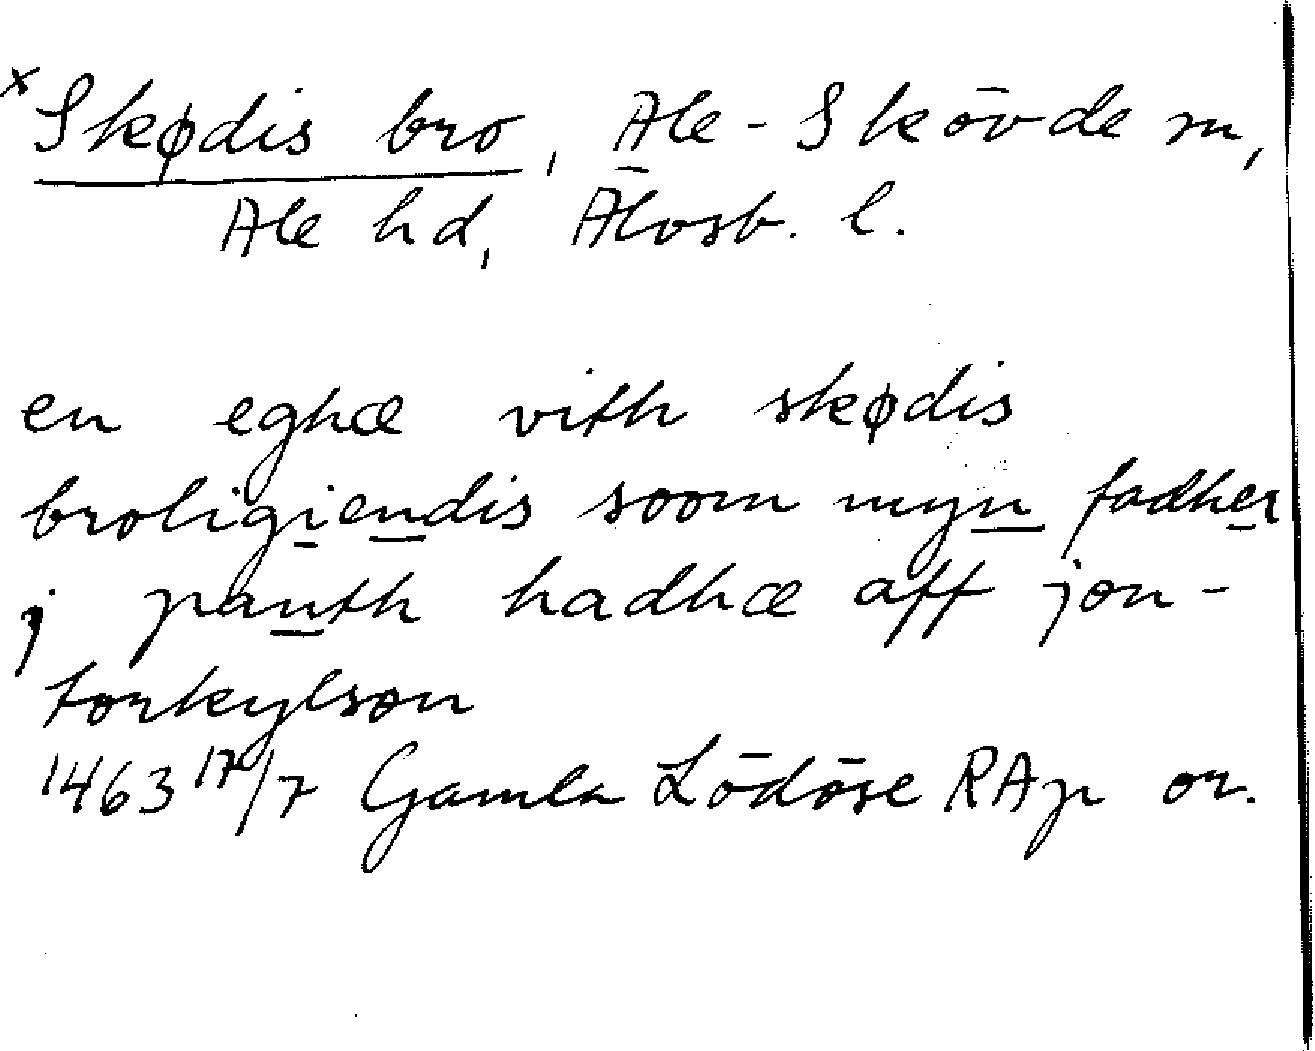 x Skødis bro, Ale-Skövde sn,
Ale hd, Älvsb. l.
en eghæ vith skødis
broligiendis soom myn fadher
j panth hadhæ aff jon-
torkylson
1463 17/7 Gamla Lödöse RAp or.